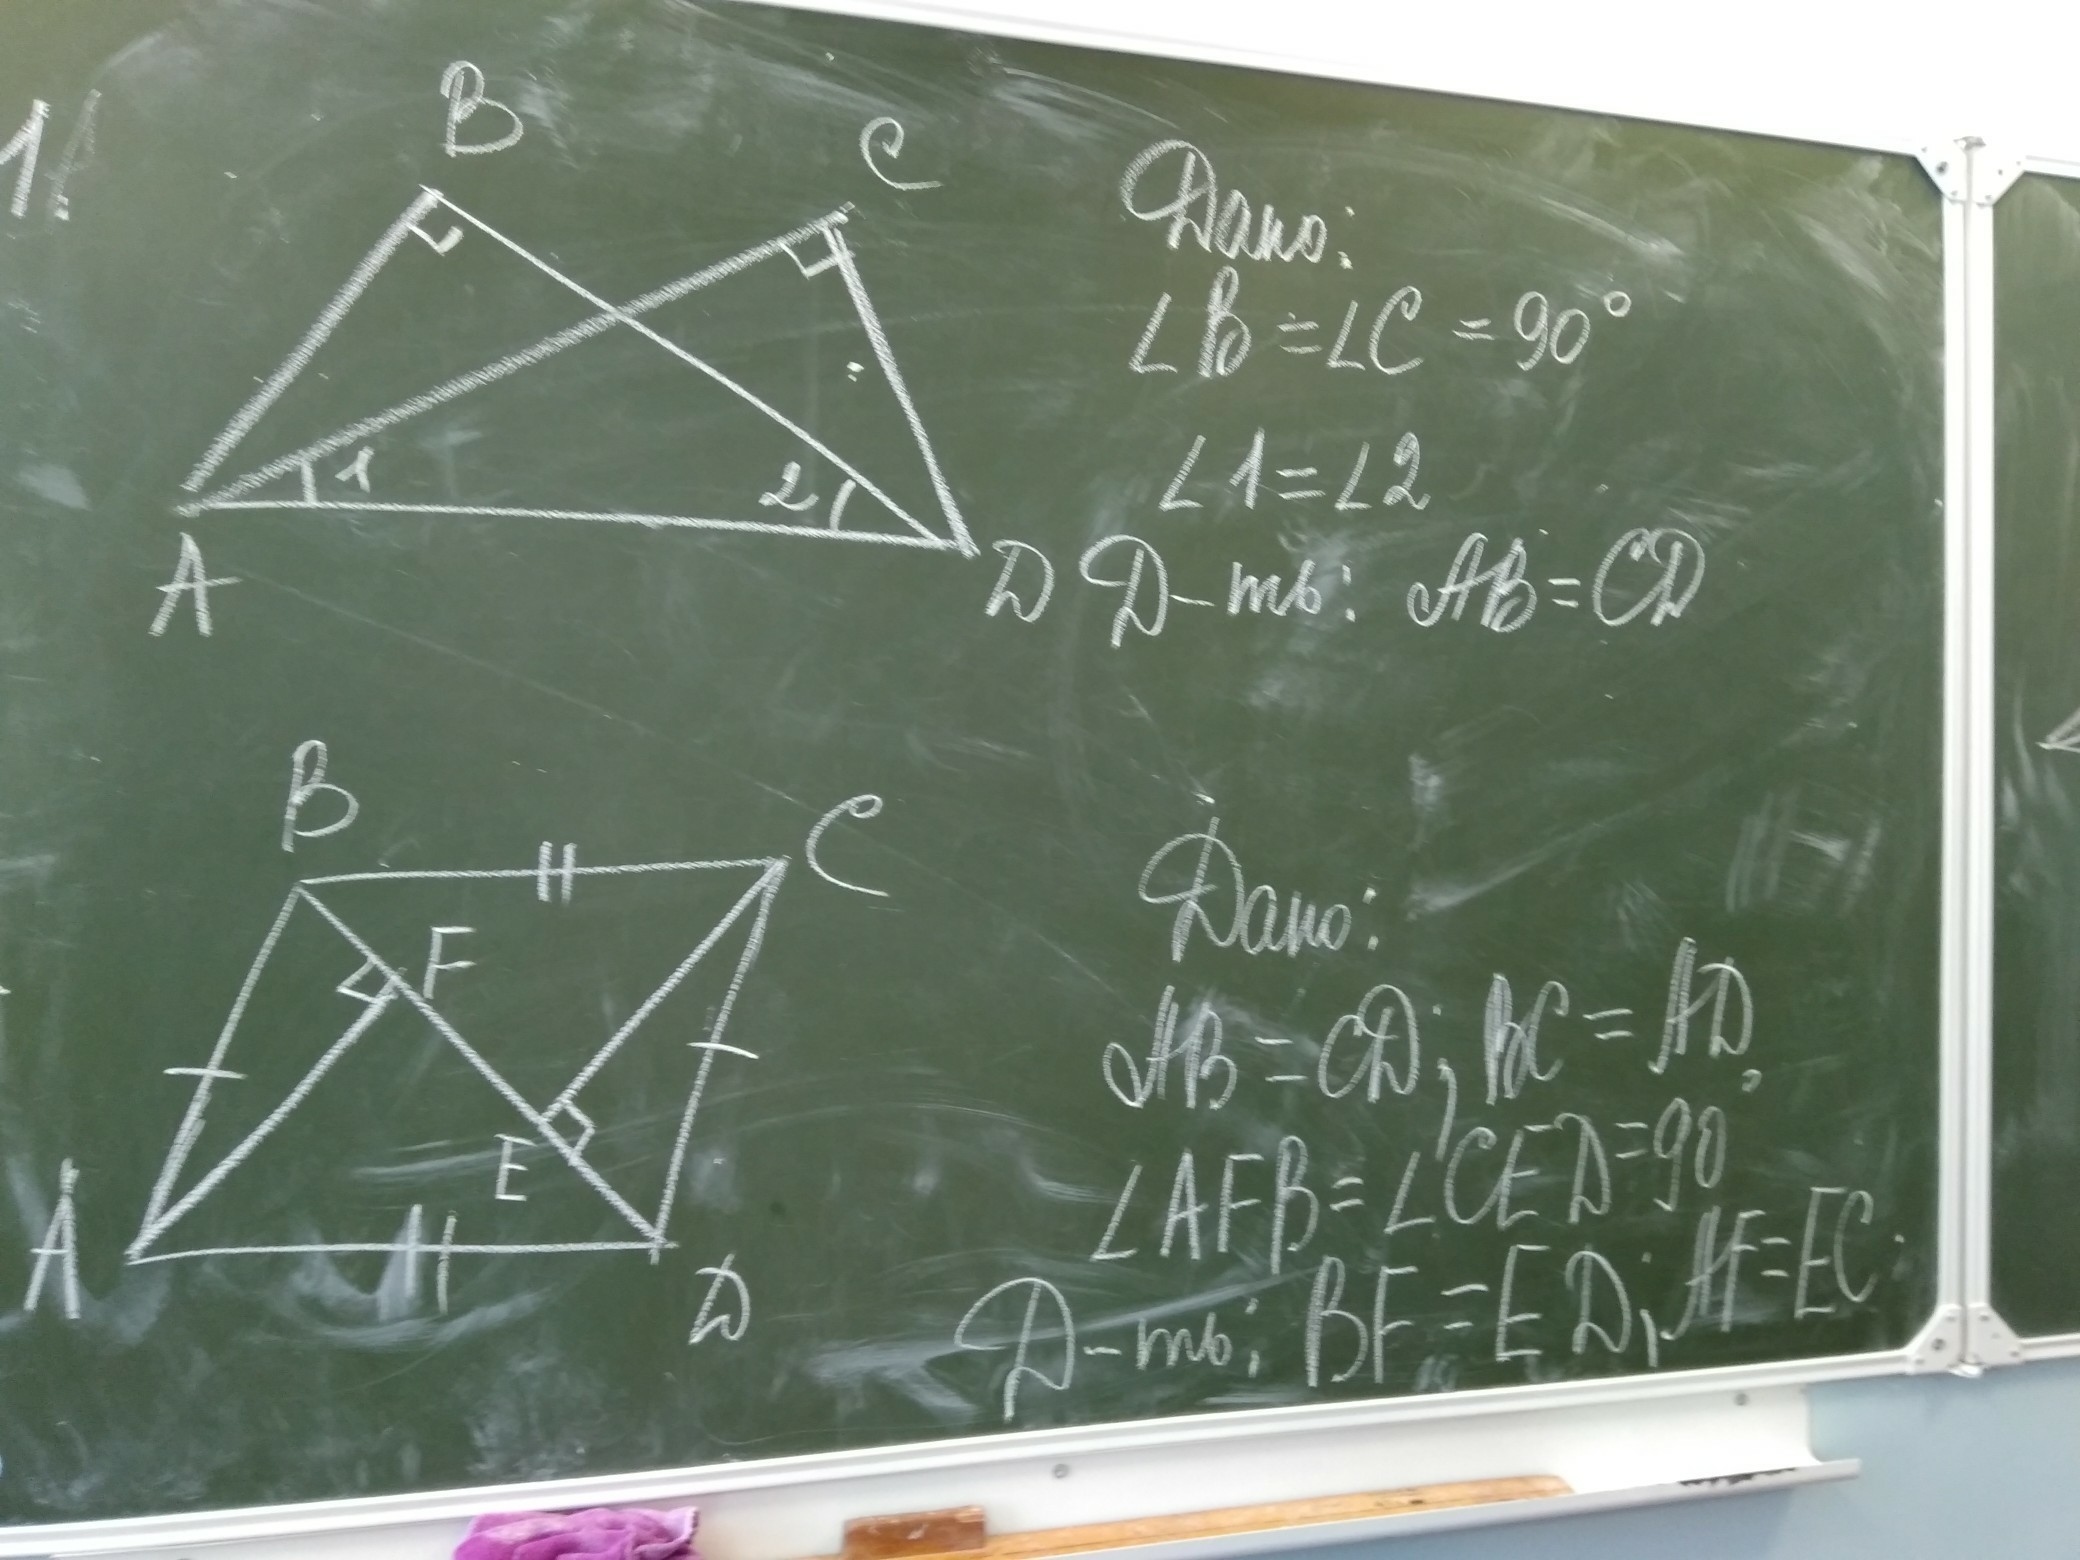 1.
B
C
1
2
A
D
Дано:
∠B = ∠C = 90°
∠1 = ∠2
Д-ть: AB = CD
B
C
F
E
A
D
Дано:
AB = CD; BC = AD,
∠AFB = ∠CED = 90°
Д-ть: BF = ED; AF = EC.